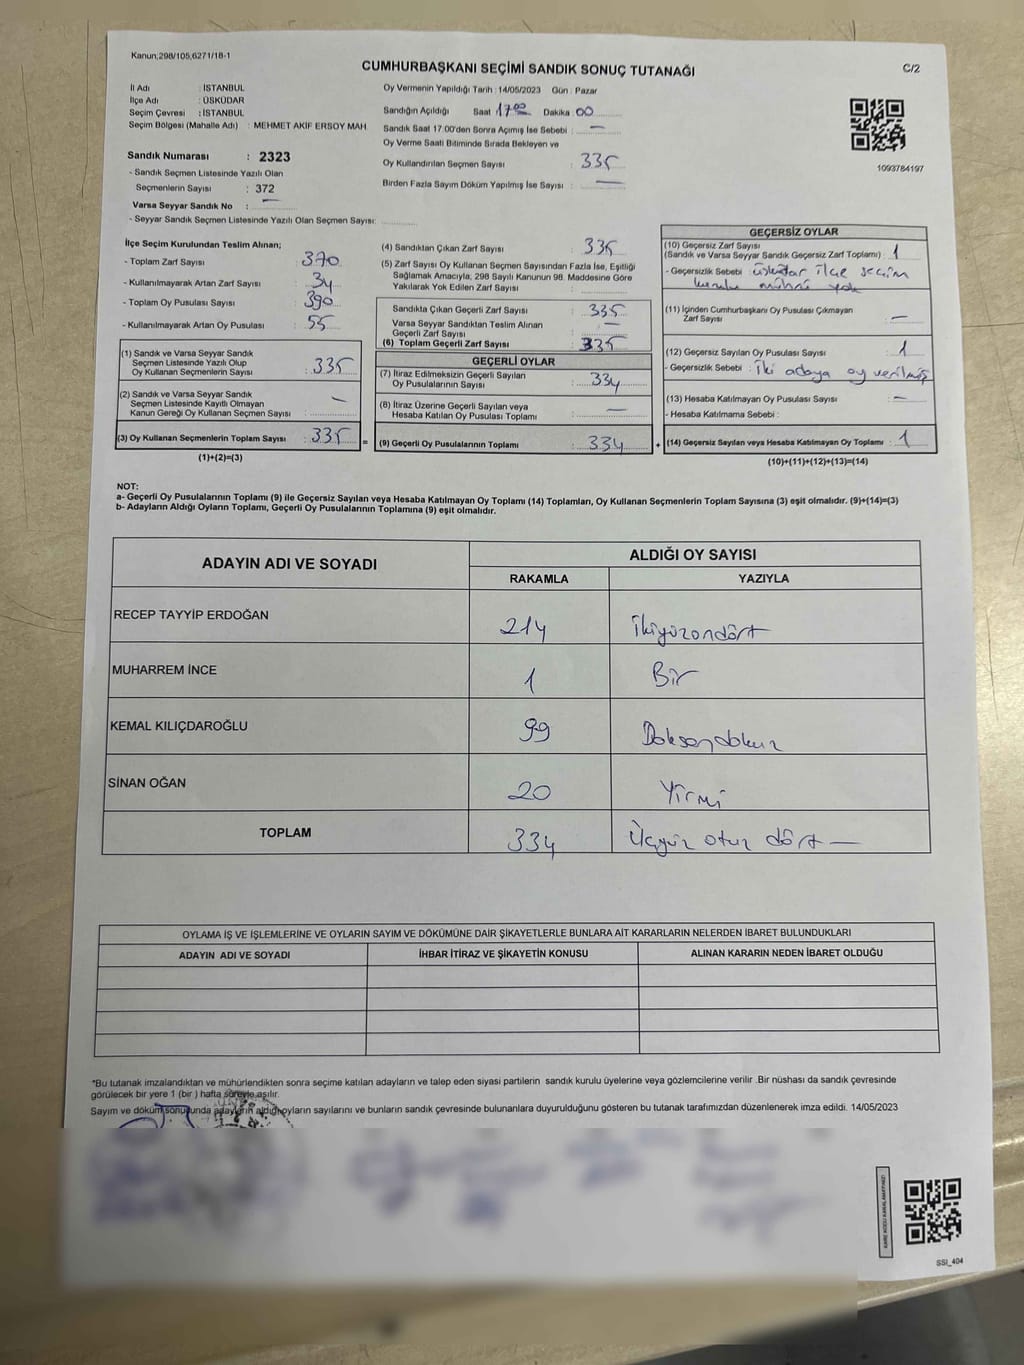 Kanun;298/105,6271/18-1
CUMHURBAŞKANI SEÇİMİ SANDIK SONUÇ TUTANAĞI
C/2
İl Adı : İSTANBUL
İlçe Adı : ÜSKÜDAR
Seçim Çevresi : İSTANBUL
Seçim Bölgesi (Mahalle Adı) : MEHMET AKİF ERSOY MAH
Sandık Numarası : 2323
- Sandık Seçmen Listesinde Yazılı Olan
Seçmenlerin Sayısı : 372
Varsa Seyyar Sandık No : —
- Seyyar Sandık Seçmen Listesinde Yazılı Olan Seçmen Sayısı:
Oy Vermenin Yapıldığı Tarih : 14/05/2023 Gün : Pazar
Sandığın Açıldığı Saat 17 00 Dakika : 00
Sandık Saat 17:00'den Sonra Açımış İse Sebebi : —
Oy Verme Saati Bitiminde Sırada Bekleyen ve
Oy Kullandırılan Seçmen Sayısı : 335
Birden Fazla Sayım Döküm Yapılmış İse Sayısı : —
1093784197
İlçe Seçim Kurulundan Teslim Alınan;
- Toplam Zarf Sayısı : 370
- Kullanılmayarak Artan Zarf Sayısı : 34
- Toplam Oy Pusulası Sayısı : 390
- Kullanılmayarak Artan Oy Pusulası : 55
(1) Sandık ve Varsa Seyyar Sandık
Seçmen Listesinde Yazılı Olup
Oy Kullanan Seçmenlerin Sayısı : 335
(2) Sandık ve Varsa Seyyar Sandık
Seçmen Listesinde Kayıtlı Olmayan
Kanun Gereği Oy Kullanan Seçmen Sayısı : —
(3) Oy Kullanan Seçmenlerin Toplam Sayısı : 335 =
(1)+(2)=(3)
(4) Sandıktan Çıkan Zarf Sayısı : 335
(5) Zarf Sayısı Oy Kullanan Seçmen Sayısından Fazla İse, Eşitliği
Sağlamak Amacıyla, 298 Sayılı Kanunun 98. Maddesine Göre
Yakılarak Yok Edilen Zarf Sayısı :
Sandıkta Çıkan Geçerli Zarf Sayısı : 335
Varsa Seyyar Sandıktan Teslim Alınan
Geçerli Zarf Sayısı : —
(6) Toplam Geçerli Zarf Sayısı : 335
GEÇERLİ OYLAR
(7) İtiraz Edilmeksizin Geçerli Sayılan
Oy Pusulalarının Sayısı : 334
(8) İtiraz Üzerine Geçerli Sayılan veya
Hesaba Katılan Oy Pusulası Toplamı : —
(9) Geçerli Oy Pusulalarının Toplamı : 334 +
GEÇERSİZ OYLAR
(10) Geçersiz Zarf Sayısı
(Sandık ve Varsa Seyyar Sandık Geçersiz Zarf Toplamı) : 1
- Geçersizlik Sebebi : üsküdar ilçe seçim
kurulu mührü yok
(11) İçinden Cumhurbaşkanı Oy Pusulası Çıkmayan
Zarf Sayısı : —
(12) Geçersiz Sayılan Oy Pusulası Sayısı : 1
- Geçersizlik Sebebi : İki adaya oy verilmiş
(13) Hesaba Katılmayan Oy Pusulası Sayısı : —
- Hesaba Katılmama Sebebi :
(14) Geçersiz Sayılan veya Hesaba Katılmayan Oy Toplamı : 1
(10)+(11)+(12)+(13)=(14)
NOT:
a- Geçerli Oy Pusulalarının Toplamı (9) ile Geçersiz Sayılan veya Hesaba Katılmayan Oy Toplamı (14) Toplamları, Oy Kullanan Seçmenlerin Toplam Sayısına (3) eşit olmalıdır. (9)+(14)=(3)
b- Adayların Aldığı Oyların Toplamı, Geçerli Oy Pusulalarının Toplamına (9) eşit olmalıdır.
ADAYIN ADI VE SOYADI ALDIĞI OY SAYISI
RAKAMLA YAZIYLA
RECEP TAYYİP ERDOĞAN 214 İkiyüzondört
MUHARREM İNCE 1 Bir
KEMAL KILIÇDAROĞLU 99 Doksandokuz
SİNAN OĞAN 20 Yirmi
TOPLAM 334 Üçyüz otuz dört —
OYLAMA İŞ VE İŞLEMLERİNE VE OYLARIN SAYIM VE DÖKÜMÜNE DAİR ŞİKAYETLERLE BUNLARA AİT KARARLARIN NELERDEN İBARET BULUNDUKLARI
ADAYIN ADI VE SOYADI İHBAR İTİRAZ VE ŞİKAYETİN KONUSU ALINAN KARARIN NEDEN İBARET OLDUĞU
*Bu tutanak imzalandıktan ve mühürlendikten sonra seçime katılan adayların ve talep eden siyasi partilerin sandık kurulu üyelerine veya gözlemcilerine verilir .Bir nüshası da sandık çevresinde
görülecek bir yere 1 (bir ) hafta süreyle asılır.
Sayım ve döküm sonucunda adayların aldığı oyların sayılarını ve bunların sandık çevresinde bulunanlara duyurulduğunu gösteren bu tutanak tarafımızdan düzenlenerek imza edildi. 14/05/2023
KARE KODU KARALAMAYINIZ!
SSI_404